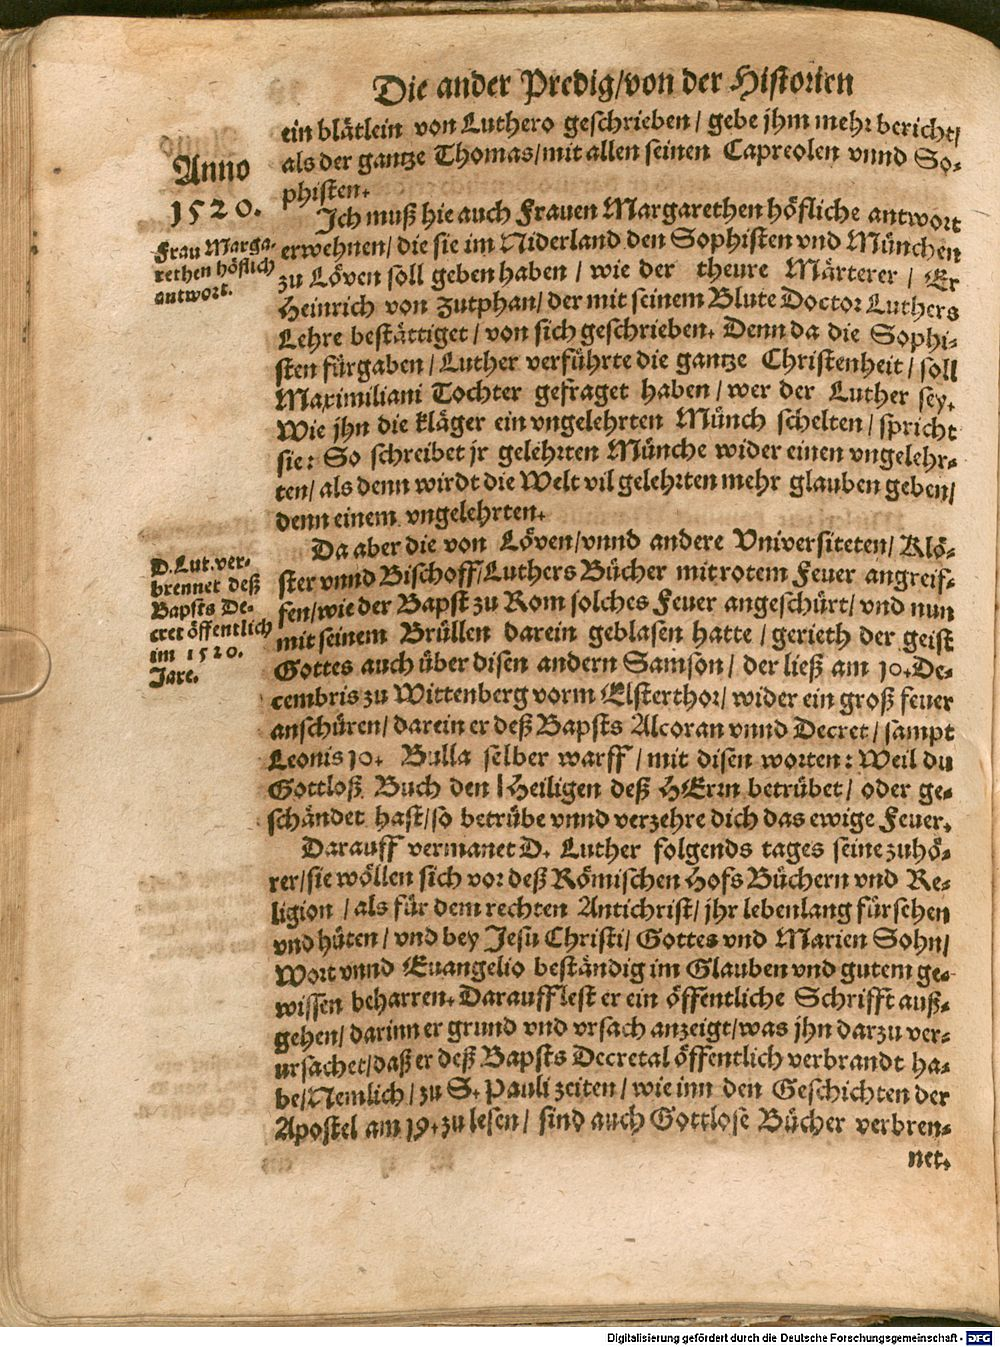 Die ander Predig/von der Historien
ein blätlein von Luthero geschrieben/ gebe jhm mehr bericht/
als der gantze Thomas/mit allen seinen Capreolen vnnd So-
phisten.
Anno
1520.
Ich muß hie auch Frauen Margarethen höfliche antwort
Frau Marga-
rethen höflich
antwort.
erwehnen/ die sie im Niderland den Sophisten vnd München
zu Löven soll geben haben/ wie der theure Märterer/ Er
Heinrich von Zutphan/ der mit seinem Blute Doctor Luthers
Lehre bestättiget/ von sich geschrieben. Denn da die Sophi-
sten fürgaben/ Luther verführte die gantze Christenheit/ soll
Maximiliani Tochter gefraget haben/ wer der Luther sey.
Wie jhn die kläger ein vngelehrten Münch schelten/ spricht
sie: So schreibet jr gelehrten Münche wider einen vngelehr-
ten/ als denn wirdt die Welt vil gelehrten mehr glauben geben/
denn einem vngelehrten.
Da aber die von Löven/vnnd andere Vniversiteten/ Klö-
D. Lut. ver-
brennet deß
Bapsts De-
cret öffentlich
im 1520.
Jare.
ster vnnd Bischoff/Luthers Bücher mit rotem Feuer angreif-
fen/wie der Bapst zu Rom solches Feuer angeschürt/ vnd nun
mit seinem Brüllen darein geblasen hatte/ gerieth der geist
Gottes auch über disen andern Samson/ der ließ am 10. De-
cembris zu Wittenberg vorm Elsterthor/ wider ein groß feuer
anschüren/ darein er deß Bapsts Alcoran vnnd Decret/ sampt
Leonis 10. Bulla selber warff/ mit disen worten: Weil du
Gottloß Buch den Heiligen deß HErrn betrübet/ oder ge-
schändet hast/so betrübe vnnd verzehre dich das ewige Feuer.
Darauff vermanet D. Luther folgends tages seine zuhö-
rer/sie wöllen sich vor deß Römischen Hofs Büchern vnd Re-
ligion/ als für dem rechten Antichrist/ jhr lebenlang fürsehen
vnd hüten/ vnd bey Jesu Christi/ Gottes vnd Marien Sohn/
Wort vnnd Euangelio beständig im Glauben vnd gutem ge-
wissen beharren. Darauff lest er ein öffentliche Schrifft auß-
gehen/ darinn er grund vnd vrsach anzeigt/was jhn darzu ver-
ursachet/daß er deß Bapsts Decretal öffentlich verbrandt ha-
be/Nemlich/ zu S. Pauli zeiten/ wie inn den Geschichten der
Apostel am 19. zu lesen/ sind auch Gottlose Bücher verbren-
net.
Digitalisierung gefördert durch die Deutsche Forschungsgemeinschaft - DFG